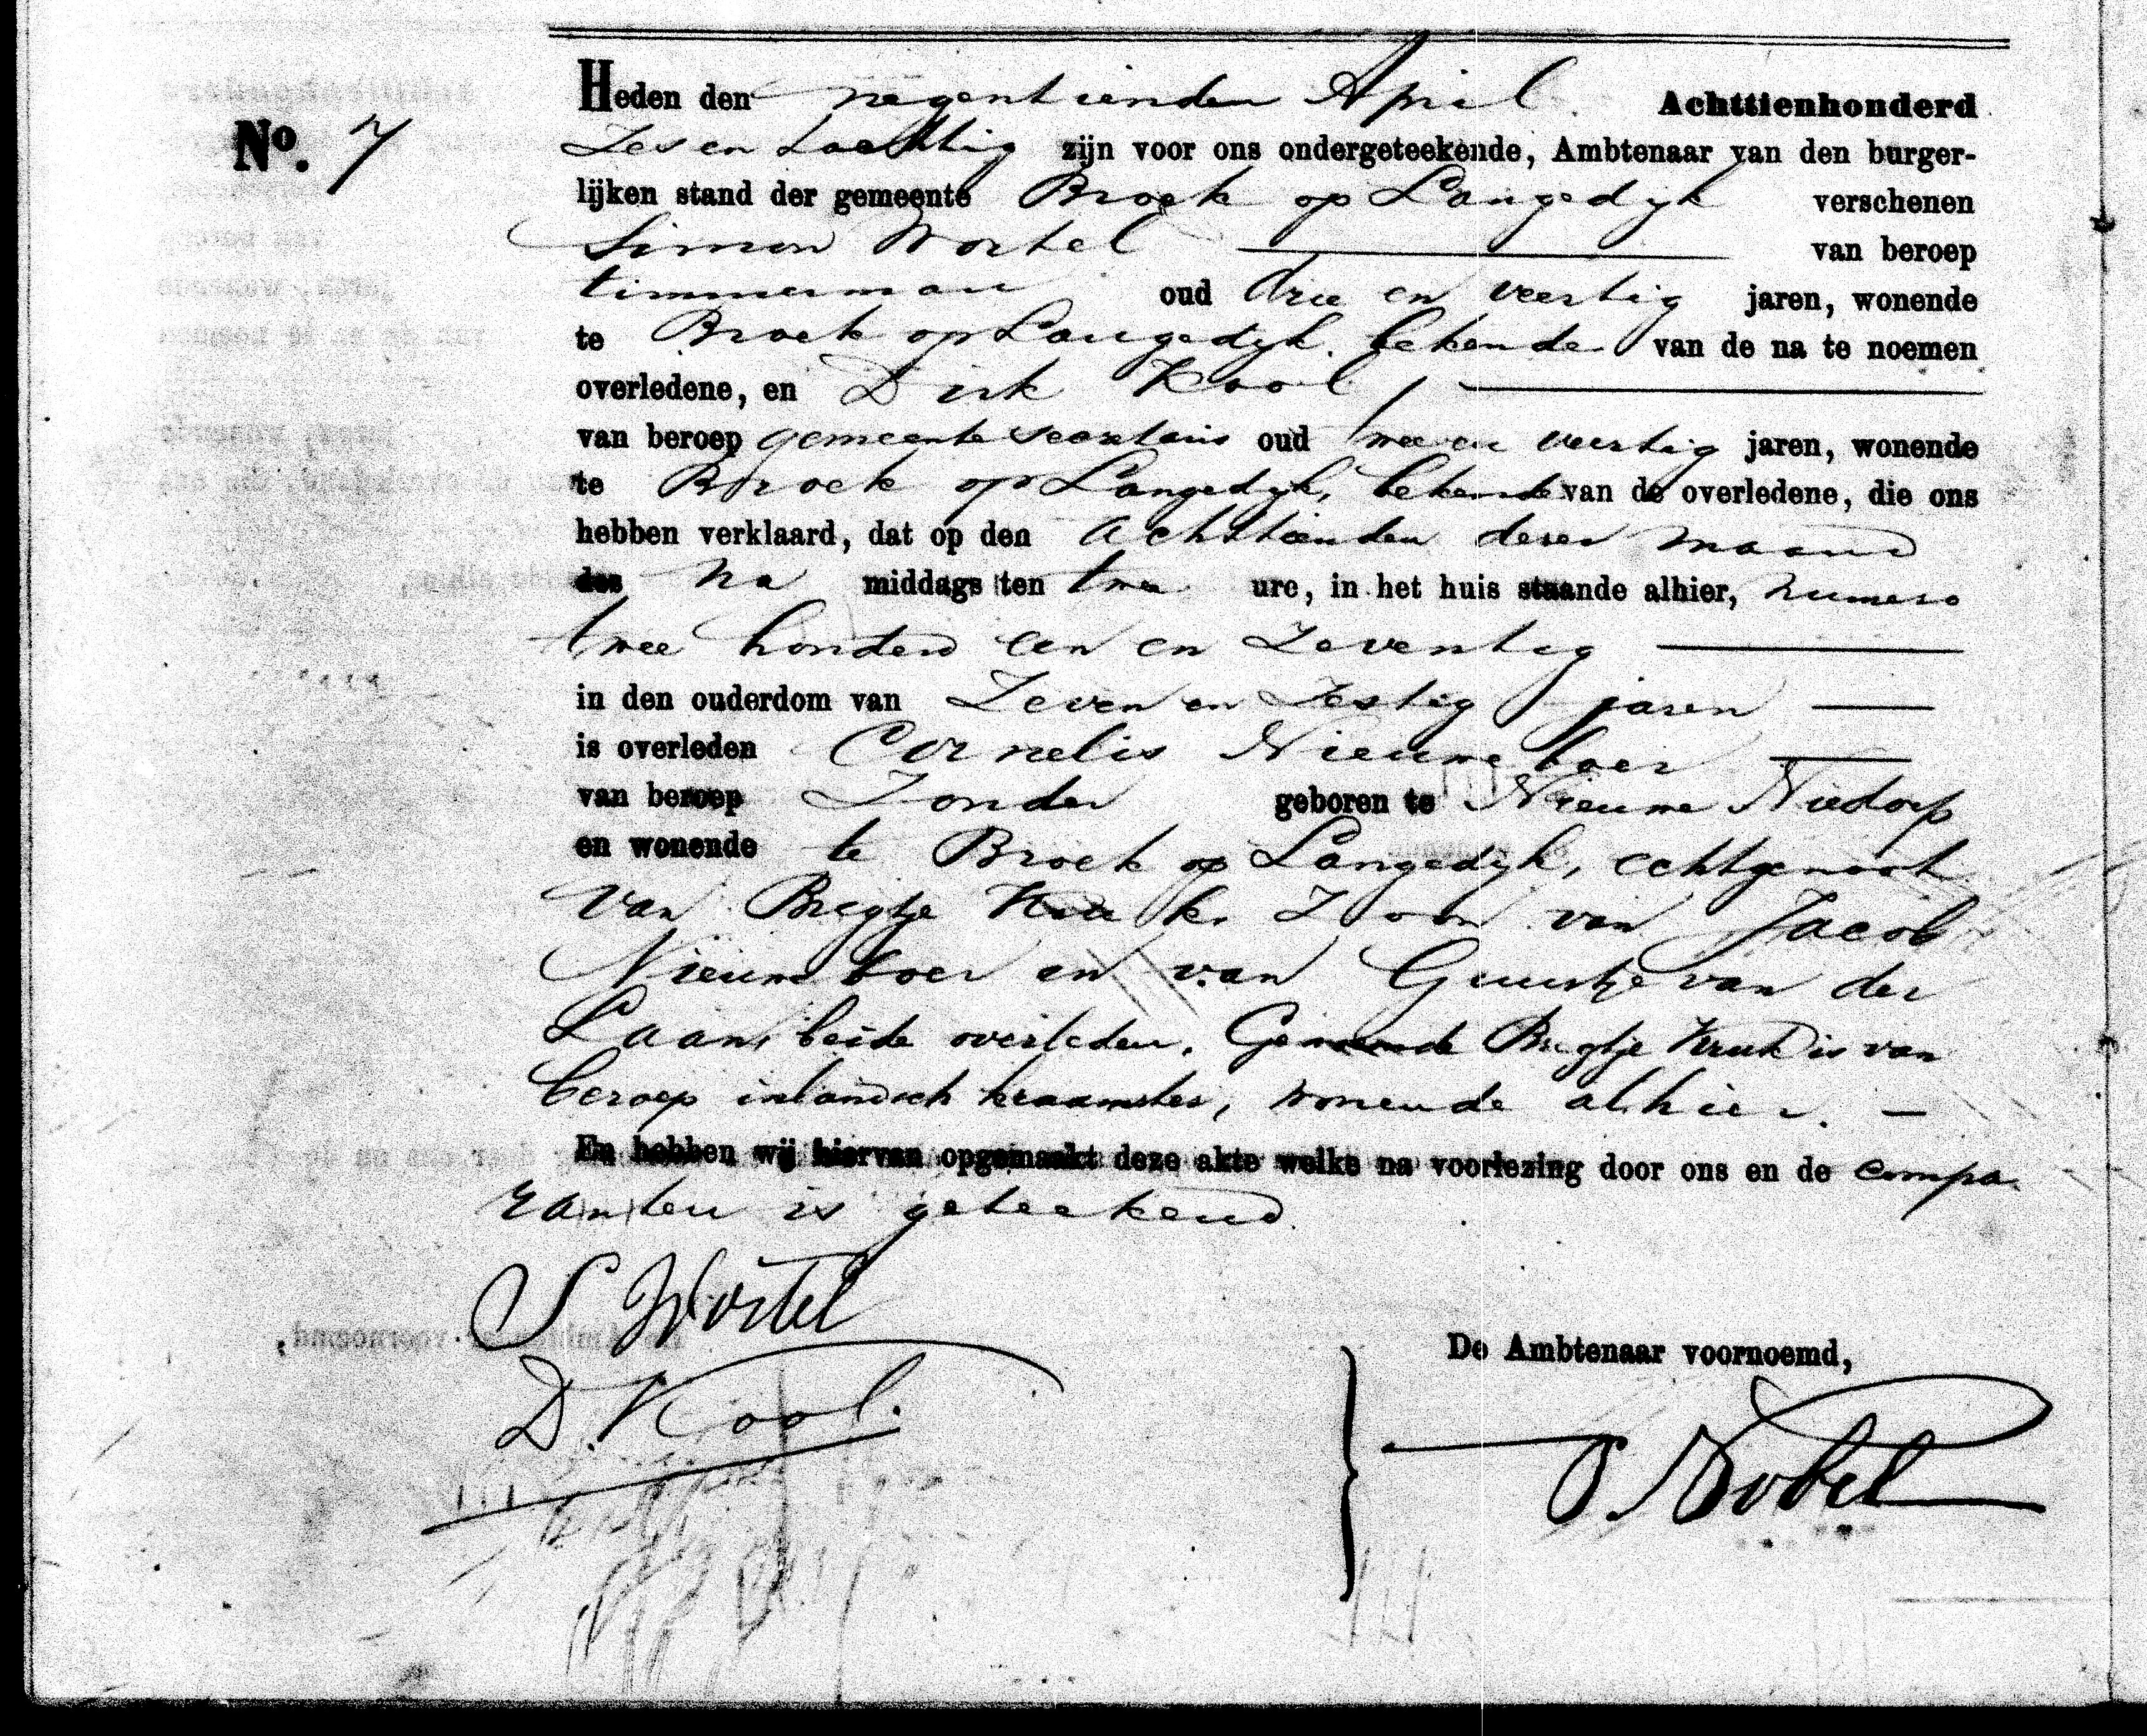 Heden den negentienden April Achttienhonderd
No. 7
Zes en tachtig zijn voor ons ondergeteekende, Ambtenaar van den burger-
lijken stand der gemeente Broek op Langedyk verschenen
Simon Wortel van beroep
timmerman oud drie en veertig jaren, wonende
te Broek op Langedyk, bekende van de na te noemen
overledene, en Dirk Kool,
van beroep gemeente secretaris oud twee en veertig jaren, wonende
te Broek op Langedyk, bekende van de overledene, die ons
hebben verklaard, dat op den achttienden dezer maand
des na middags ten twee ure, in het huis staande alhier, numero
twee honderd een en Zeventig
in den ouderdom van Zeven en Zestig jaren
is overleden Cornelis Nieuweboer
van beroep Zonder geboren te Nieuwe Niedorp
en wonende te Broek op Langedyk, echtgenoot
van Bregtje Kruk. Zoon van Jacob
Nieuweboer en van Guurtje van der
Laan, beide overleden. Genoemde Bregtje Kruk is van
beroep inlandsch kraamster, wonende alhier.
En hebben wij hiervan opgemaakt deze akte welke na voorlezing door ons en de compa-
ranten is geteekend.
S Wortel
D. Kool.
De Ambtenaar voornoemd,
P. Kobel